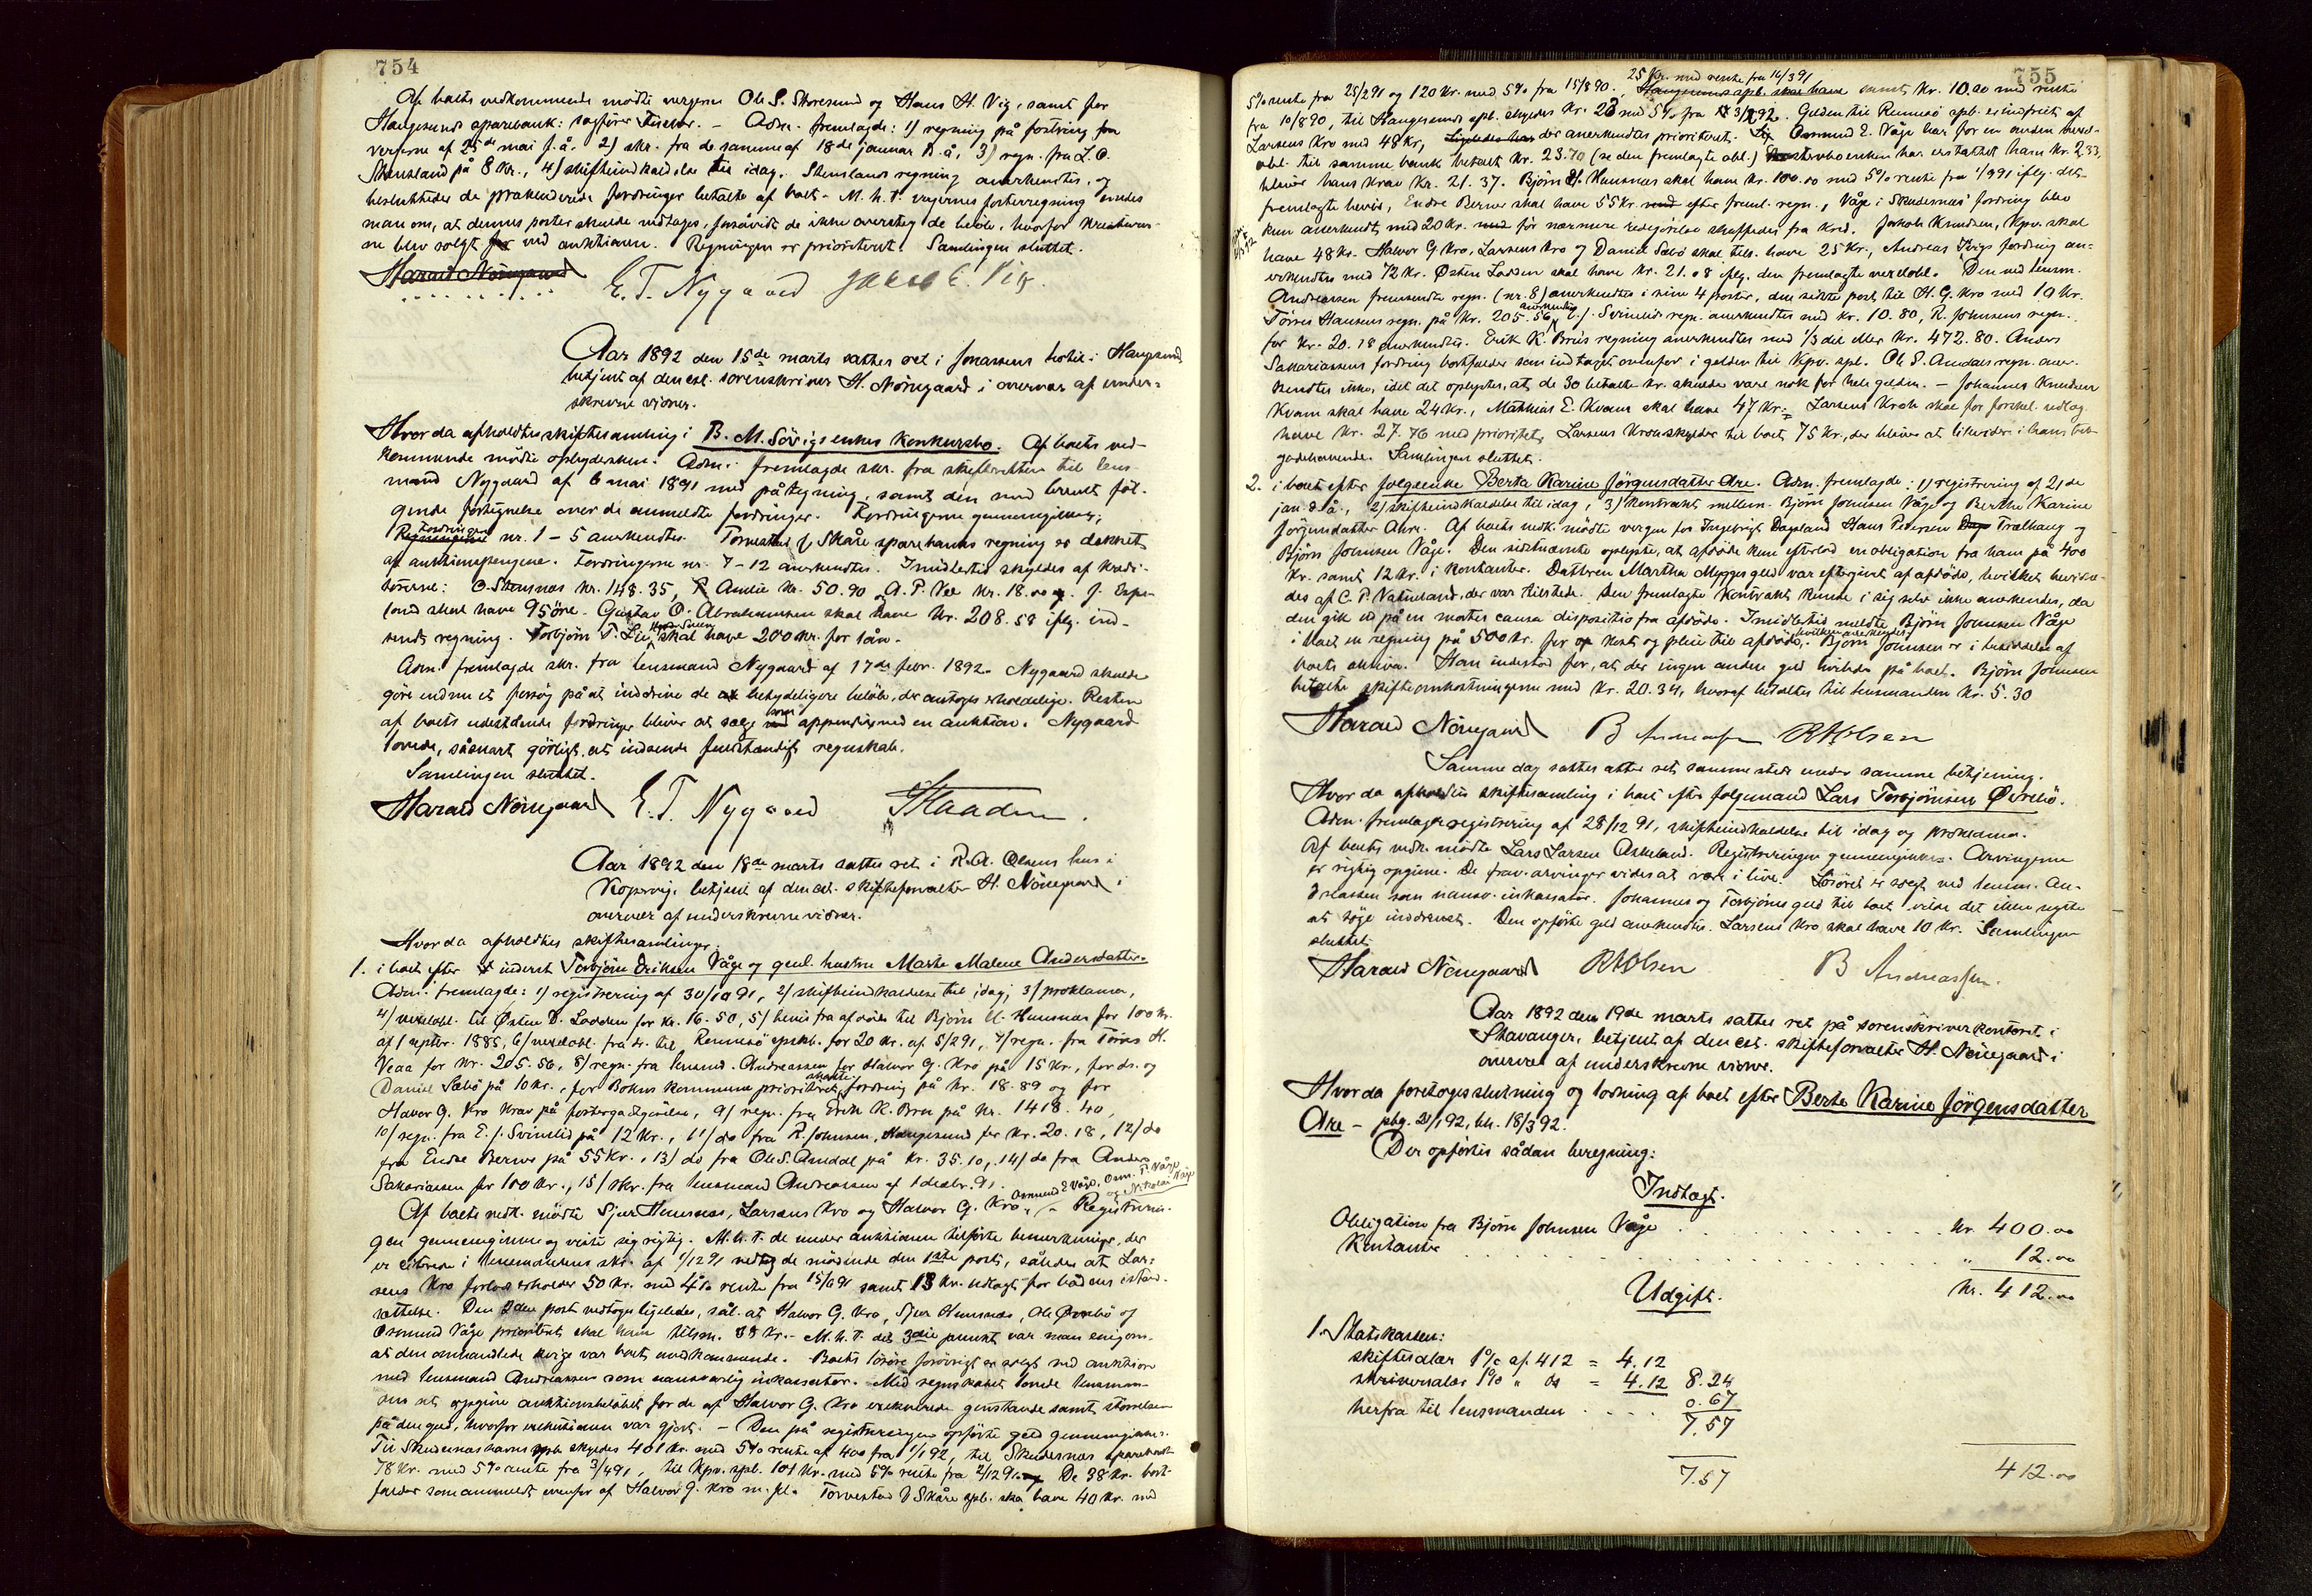 754
Af boets vedkommende mødte vergerne Ole S. Storesund og Hans H. Vig, samt for
Haugesunds sparebank: sagfører . – Adm. fremlagde: 1) regning på fordring fra
vergerne af 25de mai f.å. 2) skr. fra de samme af 18de januar d.å, 3) regn. fra L. O.
Stensland på 8 kr., 4) skifteindkaldelse til idag. Stenslands regning anerkendtes, og
besluttedes de prækluderede fordringer betalte af boet. – M. h. t. vergernes regning enedes
man om, at dennes poster skulde vedtages, forsåvidt de ikke oversteg de beløb, hvorfor
ne blev solgt ved auktionen. Regningen er prioriteret. Samlingen sluttet.
Harald Nörregaard E. T. Nygaard Jakob E. Vig.
Aar 1892 den 15de marts sattes ret i Jonassens hotel i Haugesund
betjent af den est. sorenskriver H. Nörregaard i overvær af under-
skrevne vidner.
Hvorda afholdtes skiftesamling i B. M. Sövigs enkes konkursbo. Af boets ved-
kommende mödte opbydersken. Adm. fremlagde skr. fra skifteretten til lens-
mand Nygaard af 6 mai 1891 med påtegning, samt den med brevet föl-
gende fortegnelse over de anmeldte fordringer. Fordringerne gennemgikkes;
Fordringerne nr. 1 – 5 anerkendtes. Torvestad & Skåre sparebanks regning er dækket
af auktionspengene. Fordringerne nr. 7 – 12 anerkendtes. Imidlertid skyldes af kredi-
torerne: O. Stensnæs kr. 148.35, Amlie kr. 50.90, A. P. Vee kr. 18.00 J. Espe-
land skal have 95 öre. Gustav O. Abrahamsen skal have kr. 208.58 iflg. ind-
sendt regning. Torbjörn T. Lie, skal have 200 kr. for lån.
Adm. fremlagde skr. fra lensmand Nygaard af 17de febr. 1892. Nygaard skulde
göre endnu et forsög på at inddrive de betydeligere belöb, der antoges erholdelige. Resten
af boets udestående fordringer bliver at sælge som appendix ved en auktion. Nygaard
lovede, såsnart görligt, at indsende fuldstændigt regnskab.
Samlingen sluttet.
Harald Nörregaard E. T. Nygaard
Aar 1892 den 18de marts sattes ret i R. A. Olsens hus i
Kopervig, betjent af den est. skifteforvalter H. Nörregaard i
overvær af underskrevne vidner.
Hvorda afholdtes skiftesamlinger:
1. i boet efter inderst Torbjörn Eriksen Våge og genl. hustru Marte Malene Andersdatter.
Adm. fremlagde: 1) registrering af 30/10 91, 2) skifteindkaldelse til idag, 3) proklama,
4) vexelobl. til Østen D. Lodden for kr. 16.50, 5) bevis fra afdöde til Björn U. Hemnæs for 100 kr.
af 1 septbr. 1885, 6) vexelobl. fra ds. til Rennesö spbk. for 20 kr. af 5/2 91, 7) regn. fra Törres H.
Veaa for kr. 205.56, 8) regn. fra lensmd. Andreassen for Halvor G. Kro på 15 kr., for ds. og
Daniel Sæbö på 10 kr., for Bokns kommune prioriteret skatte fordring på kr. 18.89 og for
Halvor G. Kro krav på , 9) regn. fra Erik K. Bru på kr. 1418.40,
10) regn. fra E. J. Svinelid på 12 kr., 11) do fra R. Johnsen, Haugesund for kr. 20.18, 12) do
fra Endre Berve på 55 kr., 13) do fra Ole S. Amdal på kr. 35.10, 14) do fra Anders
Sakariassen for 100 kr., 15) skr. fra lensmand Andreassen af 1 decbr. 91.
Af boets vedk. mödte Sjur Hemnæs, Larsens Kro og Halvor G. Kro, Osmund E Våge, Osm. T. Våge og Nikolai Våge – Registrerin-
gen gennemgikkes og viste sig rigtig. M. h. t. de under auktionen tilförte bemærkninger, der
er citeret i lensmandens skr. af 1/12 91 vedtog de mödende den 1ste post, således at Lar-
sens Kro erholder 50 kr. med 4% rente fra samt 13 kr. udlagt for bådens istand-
sættelse. Den 2den post vedtoges ligeledes, sål. at Halvor G. Kro, Sjur Hemnæs, Ole Øvrebö og
Osmund Våge prioritet skal have tilsm. 35 kr. – M. h. t. det 3die punkt var man enig om,
at den omhandlede kvige var boets vedkommende. Boets lösöre forövrigt er solgt ved auktion
med lensmand Andreassen som ansvarlig inkassator. Med regnskabet lovede lensman-
den at opgive auktionsbelöbet for de af Halvor G. Kro exekverede genstande samt störrelsen
på den gæld, hvorfor exekutionen var gjort. – Den på registreringen opförte gæld gennemgikkes.
Til Skudesnæshavns spb. skyldes 401 kr. med 5% rente af 400 fra 1/1 92, til Skudesnæs sparebank
78 kr. med 5% rente fra 3/4 91, til Kpv. spb. 101 kr. med 5% rente fra 2/12 91. De 38 kr. bort-
falder som anmeldt ovenfor af Halvor G. Kro m. fl. Torvestad & Skåre spb. skal have 40 kr. med
755
5% rente fra 25/2 91 og 120 kr. med 5% fra 15/8 90. 25 Kr. med rente fra 14/3 91 samt kr. 10.20 med rente
fra 10/8 90, til Haugesunds spb. skyldes kr. 28 med 5% fra 3/2 92. Gælden til Rennesö spb. er indfriet af
Larsens Kro med 48 kr, der anerkendtes prioriteret. Osmund E. Våge har for en anden vexel-
obl. til samme bank betalt kr. 23.70 (se den fremlagte obl.) enken har erstattet ham kr. 2.33,
bliver hans krav kr. 21.37. Björn U. Hemnæs skal have kr. 100.00 med 5% rente fra 1/9 91 iflg. det
fremlagte bevis, Endre Berve skal have 55 kr. efter freml. regn., Våge i Skudesnæs' fordring blev
kun anerkendt med 20 kr. för nærmere redegörelse skaffedes fra kred. Jakob Knudsen, Kpv. skal
have 48 kr. Halvor G. Kro, Larsens Kro og Daniel Sæbö skal tils. have 25 kr., Andreas Kvigs fordring an-
erkendtes med 72 kr. Østen Lodden skal have kr. 21.08 iflg. den fremlagte vexelobl. Den ved lensm.
Andreassen fremsendte regn. (nr. 8) anerkendtes i sine 4 poster, den sidste post til H. G. Kro med 19 kr.
Törres Hansens regn. på kr. 205.56 anerkendtes E. J. Svinelids regn. anerkendtes med kr. 10.80, R. Johnsens regn.
for kr. 20.18 anerkendtes. Erik K. Brus regning anerkendtes med 1/3 del eller kr. 472.80. Anders
Sakariassens fordring bortfalder som indtaget ovenfor i gælden til Kpv. spb. Ole S. Amdals regn. aner-
kendtes ikke, idet det oplystes, at de 30 betalte kr. skulde være nok for hele gælden. – Johannes Knudsen
Kvam skal have 24 kr., Mathias E. Kvam skal have 47 kr. Larsens Kroh skal for forskel. udlæg
have kr. 27.76 med prioritet, Larsens Kroh skylder til boet 75 kr., der bliver at likvidere i hans til-
godehavende. Samlingen sluttet.
2. i boet efter folgeenke Berta Karine Jörgensdatter Are. Adm. fremlagde: 1) registrering af 21de
jan. d. å., 2) skifteindkaldelse til idag, 3) kontrakt mellem Björn Johnsen Våge og Berthe Karine
Jörgensdatter Are. Af boets vedk. mödte vergen for Ingebrigt Dagsland Hans Petersen Trælhaug og
Björn Johnsen Våge. Den sidstnævnte oplyste, at afdöde kun efterlod en obligation fra ham på 400
kr. samt 12 kr. i kontanter. Datteren Marthe gæld var eftergivet af afdöde, hvilket bevidne-
des af C. P. Vatneland, der var tilstede. Den fremlagte kontrakt kunde i sig selv ikke anerkendes, da
den gik ud på en mortis causa dispositio fra afdöde. Imidlertid meldte Björn Johnsen Våge
i boet en regning på 500 kr. for kost og pleie til afdöde, hvilken anerkendtes. Björn Johnsen er i besiddelse af
boets aktiva. Han indestod for, at der ingen anden gæld hvilede på boet. Björn Johnsen
betalte skifteomkostningerne med kr. 20.34, hvoraf betaltes til lensmanden kr. 5.30
Harald Nörregaard B Andreassen RAOlsen
Samme dag sattes atter ret samme steds under samme betjening.
Hvorda afholdtes skiftesamling i boet efter folgemand Lars Torbjörnsen Øvrebö.
Adm. fremlagde registrering af 28/12 91, skifteindkaldelse til idag og proklama.
Af boets vedk. mödte Lars Larsen Askeland. Registreringen gennemgikkes. Arvingerne
er rigtig opgivne. De frav. arvinger vides at være i live. Lösöret er solgt ved lensm. An-
dreassen som ansv. inkassator. Johannes og Torbjörns gæld til boet vilde det ikke nytte
at söge inddrevet. Den opförte gæld anerkendtes. Larsens Kro skal have 10 kr. Samlingen
sluttet.
Harald Nörregaard RAOlsen B Andreassen.
Aar 1892 den 19de marts sattes ret på sorenskriverkontoret i
Stavanger, betjent af den est. skifteforvalter H. Nörregaard i
overvær af underskrevne vidner.
Hvorda foretoges slutning og lodning af boet efter Berte Karine Jörgensdatter
Are – pbg. 21/1 92, beh. 18/3 92.
Der opförtes sådan beregning:
Indtægt.
Obligation fra Björn Johnsen Våge . . . . kr. 400.00
Kontanter . . . . " 12.00
Kr. 412.00
Udgift.
1. Statskassen:
skiftesalær 1% af 412 = 4.12
skriversalær 1% " ds = 4.12 8.24
herfra til lensmanden . . . . 0.67
7.57
7.57 412.00